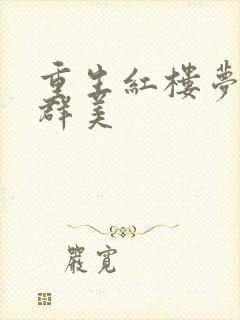 重生紅樓夢
群美
嚴寬